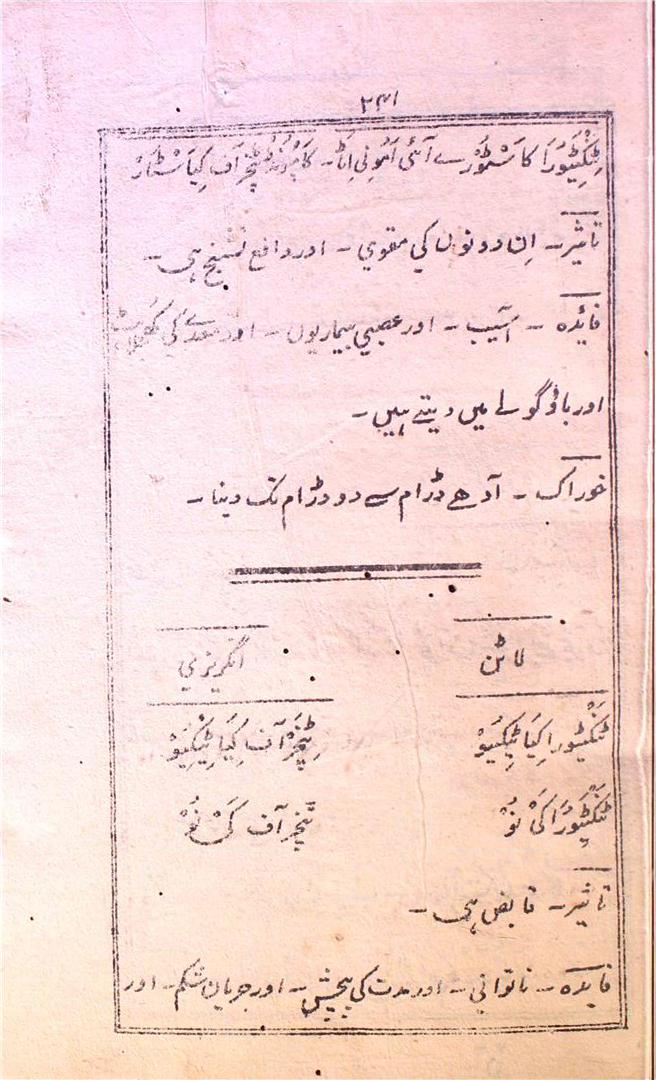 ۲۴۱
ٹِنکْٹِیُورَا کاسْٹُورے آئی اَمُونی اٹَا - کامْپُونْڈ ٹِنْچَر آف کِیاسْٹار
تاثیر - اِن دونوں کي مقوي - اور دافع تشنج ہی -
فائدہ - آسیب - اور عصبي بیماریوں - اور معدے کي
اور باؤ گولے میں دیتے ہیں -
خوراک - آدھے ڈرام سے دو ڈرام تک دینا -
لاٹن انگریزي
ٹِنکْٹیورا کِیَاٹِیکِیُوْ ٹِنْچَر آف کِیَاٹِیکِیُوْ
ٹِنکْٹِیُورَا کَیْ نُوْ ٹِنْچَر آف کَیْ نُوْ
تاثیر - قابض ہی -
فایدہ - ناتواني - اور مدت کی پیچش - اور جریان شکم - اور